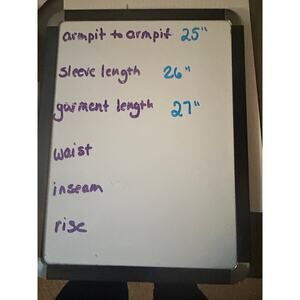 armpit to armpit 25"
sleeve length 26"
garment length 27"
waist
inseam
rise